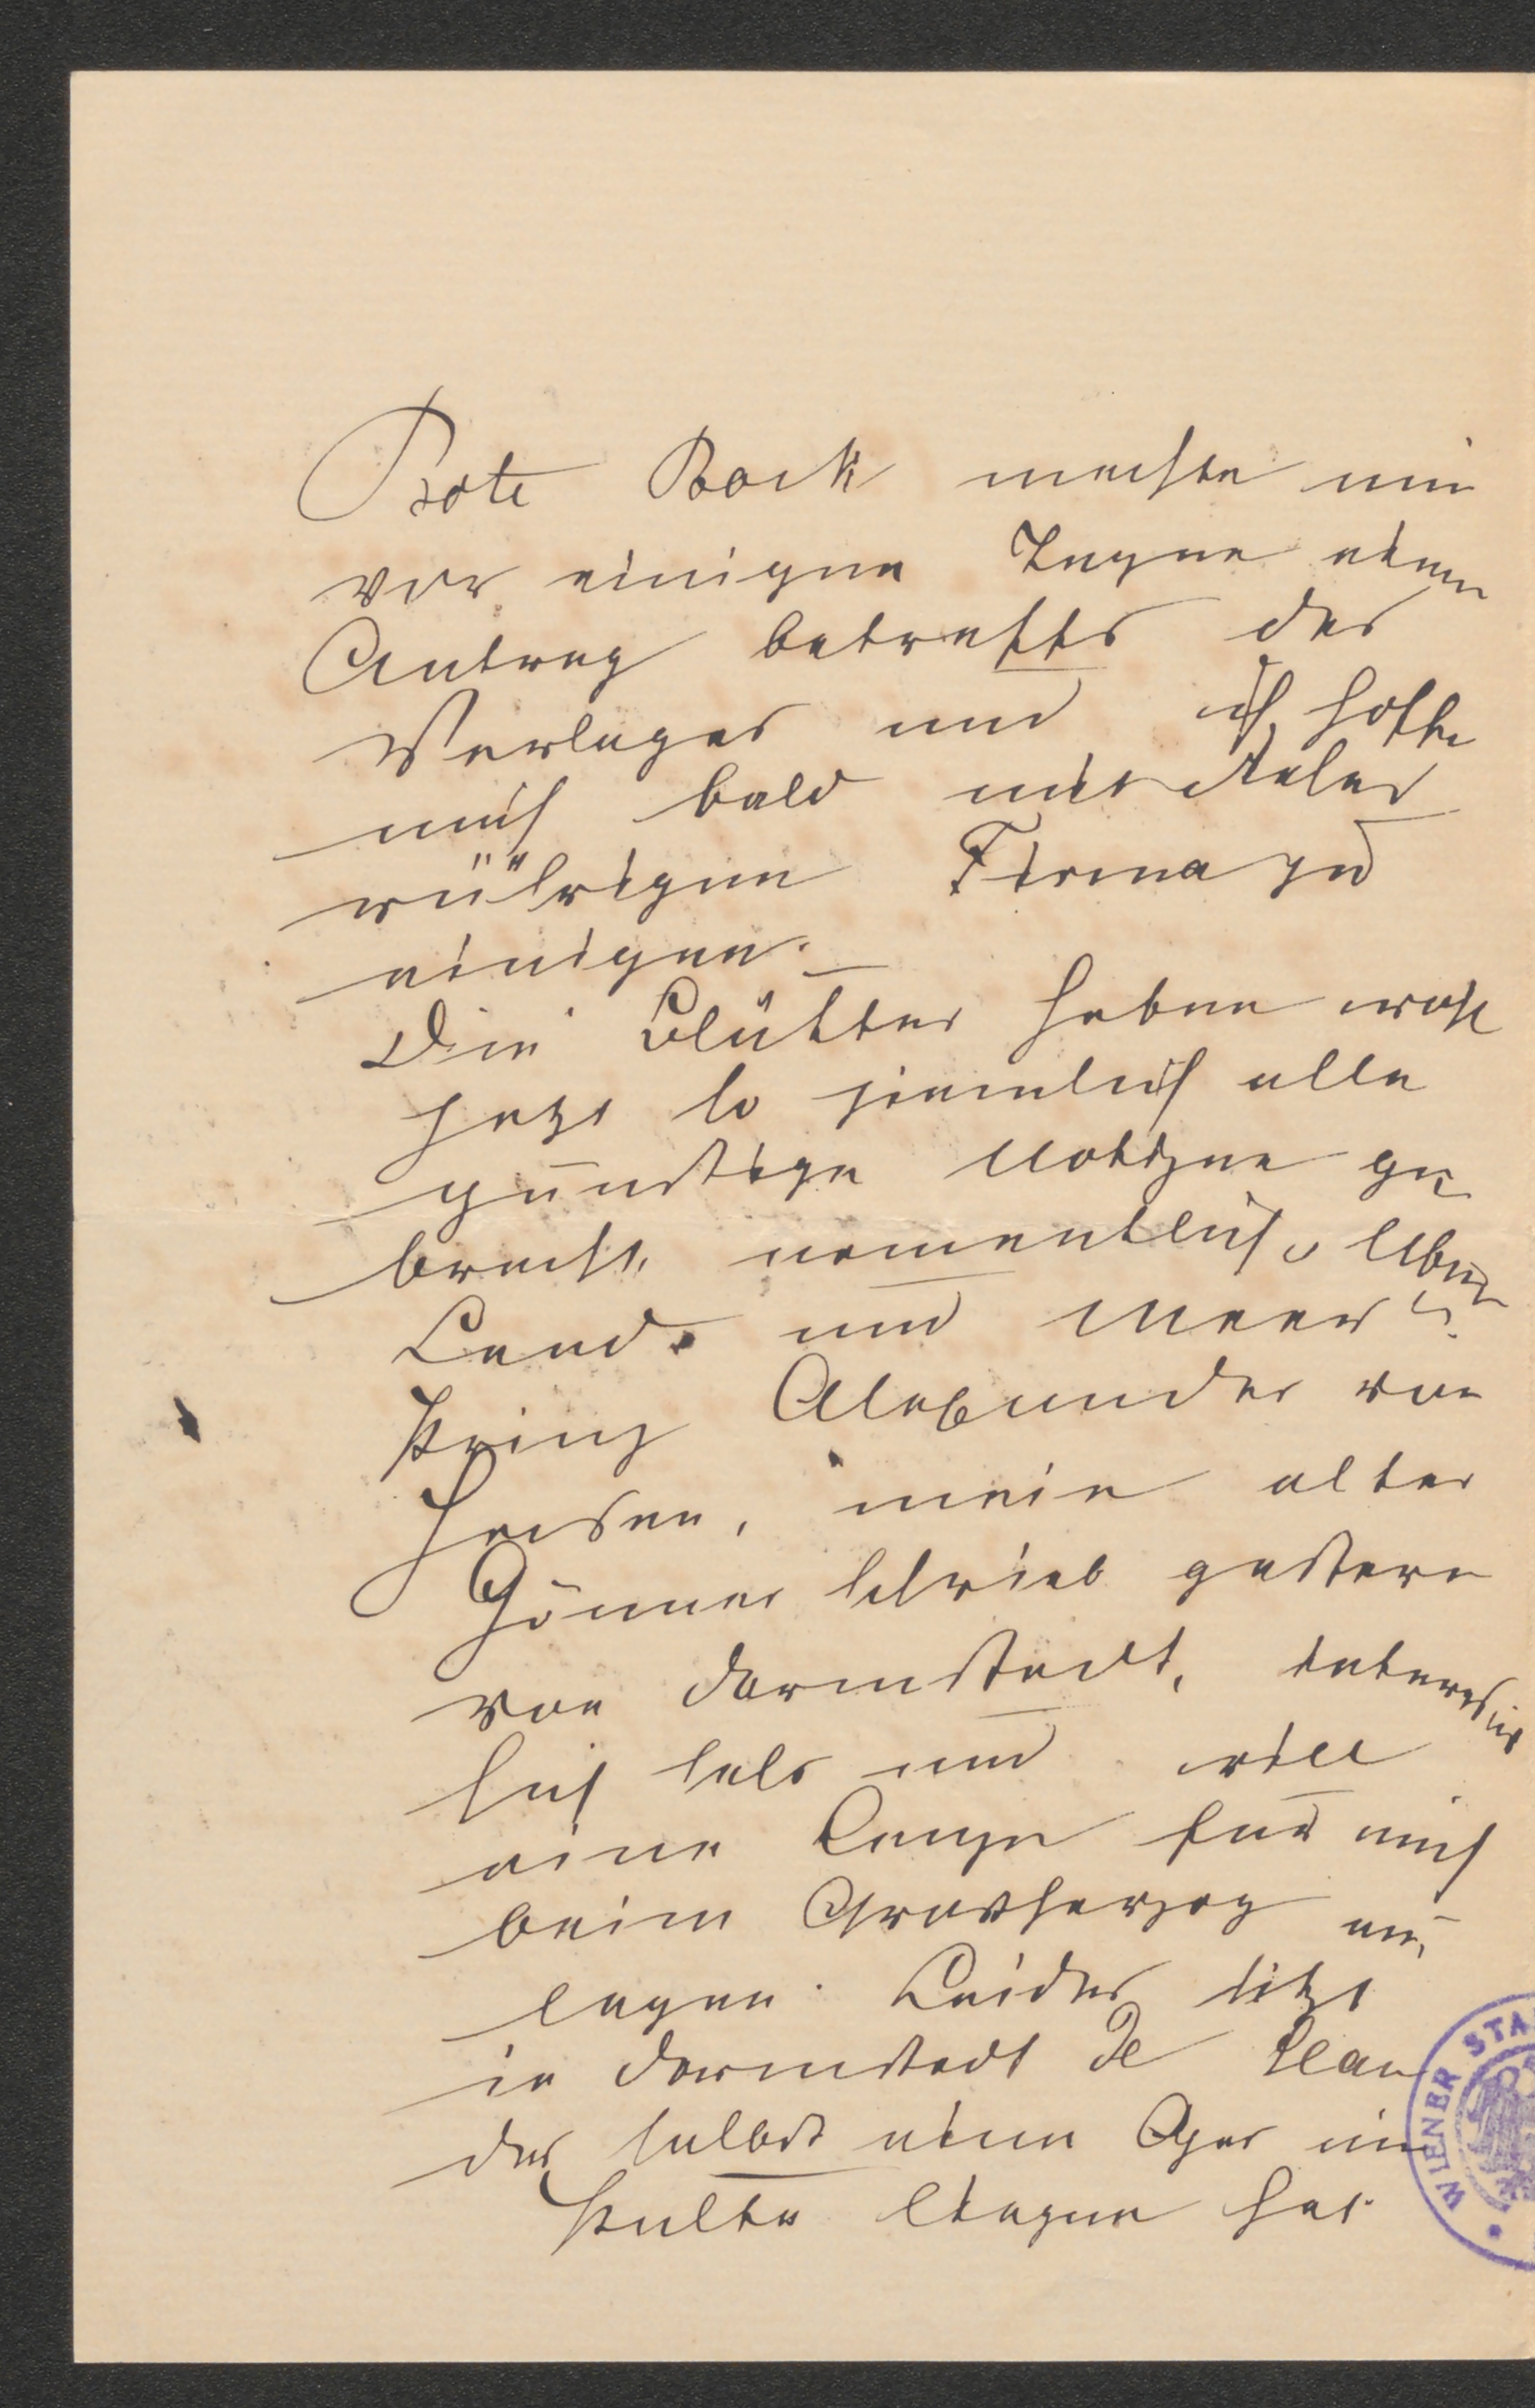 Bote Bock machte mir
vor einigen Tagen einen
Antrag betreffs des
Verlages und ich hoffe
mich bald mit dieser
rührigen Firma zu
einigen.
Die Blätter haben wohl
jetzt so ziemlich alle
günstige Notizen ge
bracht, namentlich „Über
Land und Meer“.
Prinz Alexander von
Hessen, mein alter
Gönner schrieb gestern
von Darmstadt, interessirt
sich sehr und will
eine Lanze für mich
beim Grosherzog ein,
legen. Leider sitzt
in Darmstadt de Haan
der selbst eine Oper im
Pulte liegen hat.
WIENER STA